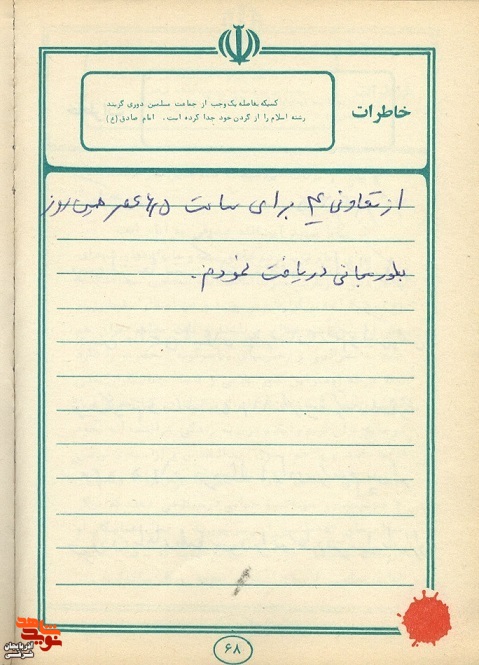 خاطرات
کسیکه بفاصله یک وجب از جماعت مسلمین دوری گزیند
رشته اسلام را از گردن خود جدا کرده است. امام صادق (ع)
از تعاونی برای ساعت عصر همین روز
بطور مجانی دریافت نمودم.
۶۸
نوید شاهد
آذربایجان شرقی